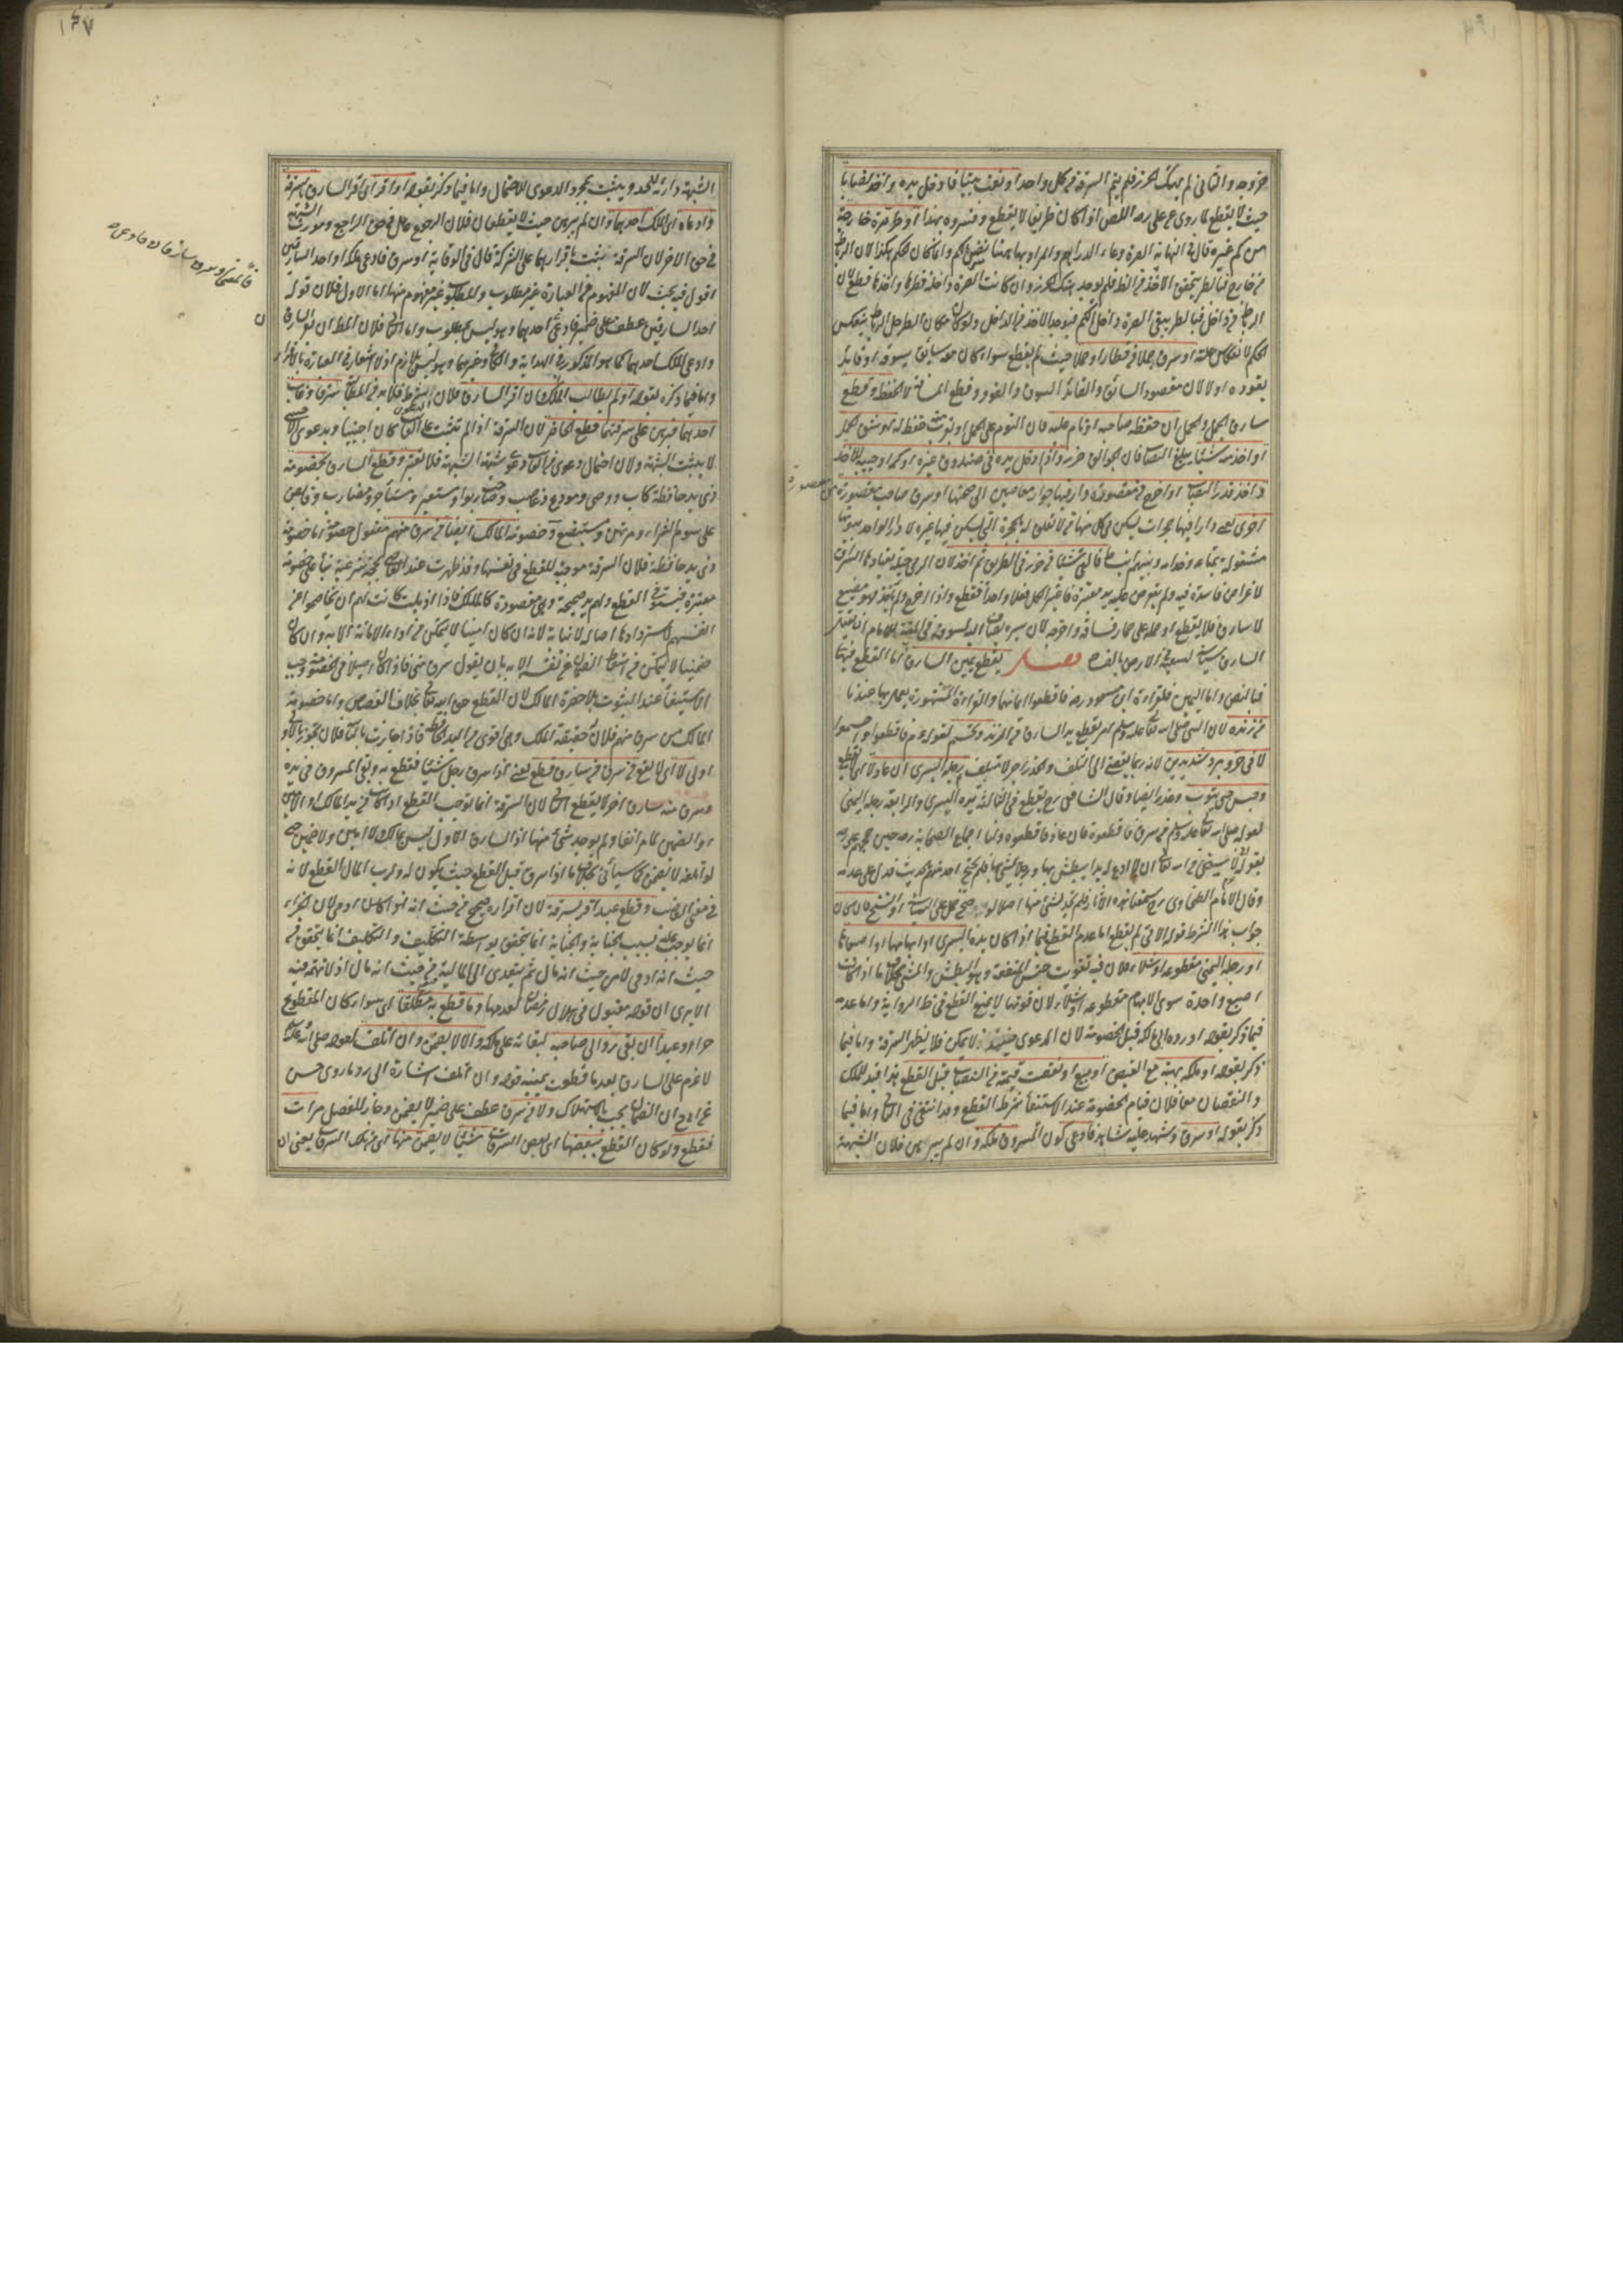 حيث لا يقطع لما روي عن علي رضه اللص اذا كان ظريفا لا يقطع وفسروه بهذا او طر صرة خارجة
من كم غيره قال في النهاية الصرة وعاء الدراهم والمراد بها ههنا نفس الكم وانما كان الحكم هكذا لان الرباط
من خارج فبالطر يتحقق الاخذ من الظاهر فلم يوجد هتك الحرز وان كانت الصرة داخلة فطرها واخذها قطع لان
الرباط من داخل فبالطر يبقى الصرة داخل الكم فيوجد الاخذ من الداخل ولو كان مكان الطر حل الرباط ينعكس
الحكم لانعكاس العلة او سرق جملا من قطار او حملا حيث لم يقطع سواء كان معه سائق يسوقه او قائد
يقوده او لا لان مقصود السائق والقائد السوق والقود وقطع المسافة لا الحفظ وقطع
سارق الجمل والحمل ان حفظه صاحبه او نام عليه فان النوم على الحمل او بقربه حفظ له او شق الحمل
او اخذ منه شيئا يبلغ النصاب فان الجوالق حرز او ادخل يده في صندوق غيره او كمه او جيبه للاخذ
واخذ قدر النصاب او اخرج من مقصورة دار فيها مقاصير الى صحنها او سرق صاحب مقصورة من
مقصورة
اخرى يعني دارا فيها حجرات يسكن في كل منها من لا تعلق له بالحجرة التي يسكن فيها غيره لا دار الواحد بيوتها
مشغولة بمتاعه وخدامه وبينهم انبساط او القى شيئا من حرز في الطريق ثم اخذ لان الرمي حيلة يعتادها السراق
لاغراض فاسدة فيه ولم يعترض عليه يد معتبرة فاعتبر الكل فعلا واحدا فيقطع واذا خرج ولم ياخذ فهو مضيع
لا سارق فلا يقطع او حمله على حمار فساقه واخرجه لان سيره يضاف اليه لسوقه
السارق سياسة لسعيه في الارض بالفساد فصل يقطع يمين السارق اما القطع فبالنص
فبالنص واما اليمين فلقراءة ابن مسعود رضه فاقطعوا ايمانهما والقراءة المشهورة يعمل بها عندنا
من زنده لان النبي صلى الله تعالى عليه وسلم امر بقطع يد السارق من الزند ويحسم لقوله عم فاقطعوا واحسموا
لا في حر وبرد شديدين لانه ربما يفضي الى التلف والحد زاجر لا متلف ورجله اليسرى ان عاد
وحبس حتى يتوب وعزر ايضا وقال الشافعي رح يقطع في الثالثة يده اليسرى والرابعة رجله اليمنى
لقوله صلى الله تعالى عليه وسلم من سرق فاقطعوه فان عاد فاقطعوه ولنا اجماع الصحابة رضه حين حجهم علي رضه
بقوله اني لاستحيي من الله تعالى ان لا ادع له يدا يبطش بها ورجلا يمشي بها فلم يحتج احد منهم بحديث فدل على عدمه
وقال الامام الطحاوي رح تتبعنا هذه الاثار فلم نجد لشيء منها اصلا ولو صح حمل على السياسة او النسخ فان كان
جواب هذا الشرط قوله الاتي لم يقطع اما عدم القطع فيما اذا كان يده اليسرى او ابهامها او اصبعاها
او رجله اليمنى مقطوعة او شلاء فلان فيه تفويت جنس المنفعة وهو البطش والمشي بخلاف ما اذا كانت
اصبع واحدة سوى الابهام مقطوعة او شلاء لان فوتها لا يمنع القطع في ظاهر الرواية واما عدمه
فيما ذكر بقوله او رده الى مالكه قبل الخصومة لان الدعوى لا يمكن فلا يظهر السرقة واما فيما
ذكر بقوله او ملكه بهبة مع القبض او بيع او نقصت قيمته من النصاب قبل القطع هذا قيد للملك
والنقصان معا فلان قيام الخصومة عند الاستيفاء شرط القطع وقد انتفى في الثاني واما فيما
ذكر بقوله او سرق وشهد عليه شاهد فادعى كون المسروق ملكه وان لم يبرهن فلان الشبهة
الشبهة دارئة للحد ويثبت بمجرد الدعوى للاحتمال واما فيما ذكر بقوله او اقرا اي اقر السارق بسرقة
وادعاه اي الملك احدهما وان لم يبرهن حيث لا يقطعان فلان الرجوع عامل في حق الراجع ومورث الشبهة
في حق الاخر لان السرقة تثبت باقرارهما على الشركة قال في الوقاية او سرق فادعى ملكه او احد السارقين
اقول فيه بحث لان المفهوم من العبارة غير مطلوب والمطلوب غير مفهوم منها اما الاول فلان قوله
احد السارقين عطف على ضمير فادعى احدهما وهو ليس بمطلوب واما الثاني فلان المطلوب ان يقر السارقان
وادعى الملك احدهما كما هو المذكور في الهداية والكافي وغيرهما وهو ليس بلازم اذ لا اشعار في العبارة بالاقرار
واما فيما ذكره بقوله او لم يطالب المالك وان اقر السارق فلان
احدهما فبرهن على سرقتهما قطع الحاضر لان السرقة اذا لم تثبت على الغائب كان اجنبيا وبدعوى الاجنبي
لا يثبت الشبهة ولان احتمال دعوى الغائب شبهة الشبهة فلا تعتبر وقطع السارق بخصومة
ذي يد حافظة كاب ووصي ومودع وغاصب وصاحب ربوا ومستعير ومستاجر ومضارب وقابض
على سوم الشراء ومرتهن ومستبضع وخصومة المالك ايضا من سرق منهم مفعول خصومة اما خصومة
ذي يد حافظة فلان السرقة موجبة للقطع في نفسها وقد ظهرت عند القاضي بحجة شرعية بناء على خصومة
معتبرة فيستوفى القطع ولهم يد صحيحة وهي مقصودة كالملك فاذا ازيلت كانت لهم ان يخاصموا عن
انفسهم لاستردادها اصالة لا نيابة لانه ان كان امينا لا يتمكن من اداء الامانة الا به وان كان
ضمينا لا يتمكن من اسقاط الضمان عن نفسه الا به بان يقول سرق مني فاذا كان اصيلا في الخصومة وجب
الاستيفاء عند الثبوت بلا حضرة المالك لان القطع حق الله تعالى بخلاف القصاص واما خصومة
المالك من سرق منهم فلان حقيقة الملك وهي اقوى من اليد الحافظة فاذا جازت بالثانية فلان تجوز بالاولى
اولى لا اي لا يقطع من سرق من سارق قطع يعني اذا سرق رجل شيئا فقطع به وبقي المسروق في يده
وسرق منه سارق اخر لا يقطع الثاني لان السرقة انما توجب القطع اذا كانت من يد المالك او الامين
او الضمين كما مر انفا ولم يوجد شيء منها اذ السارق الاول ليس بمالك ولا امين ولا ضمين
لو اتلفه لا يضمن كما سياتي بخلاف ما اذا سرق قبل القطع حيث يكون له ولرب المال القطع لانه
في معنى الغاصب وقطع عبد اقر بسرقة لان اقراره صحيح من حيث انه
انما يوجب عليه بسبب الجناية والجناية انما يتحقق بواسطة التكليف والتكليف انما يتحقق من
حيث انه ادمي لا من حيث انه مال ثم يتعدى الى المالية من حيث انه مال اذ لا تهمة فيه
الا يرى ان قوله مقبول في هلال رمضان لعدمها وما قطع به مطلقا اي سواء كان المقطوع
حرا او عبدا ان بقي رد الى صاحبه لبقائه على ملكه والا لا يضمن وان اتلف لقوله صلى الله عليه وسلم
لا غرم على السارق بعد ما قطعت يمينه قوله وان اتلف اشارة الى رد ما روى حسن
عن ابي ح ان الضمان يجب بالاستهلاك ولا من سرق عطف على ضمير لا يضمن وجاز للفصل مرات
فقطع ولو كان القطع ببعضها اي بعض السرقات شيئا لا يضمن منها اي من تلك السرقات يعني ان